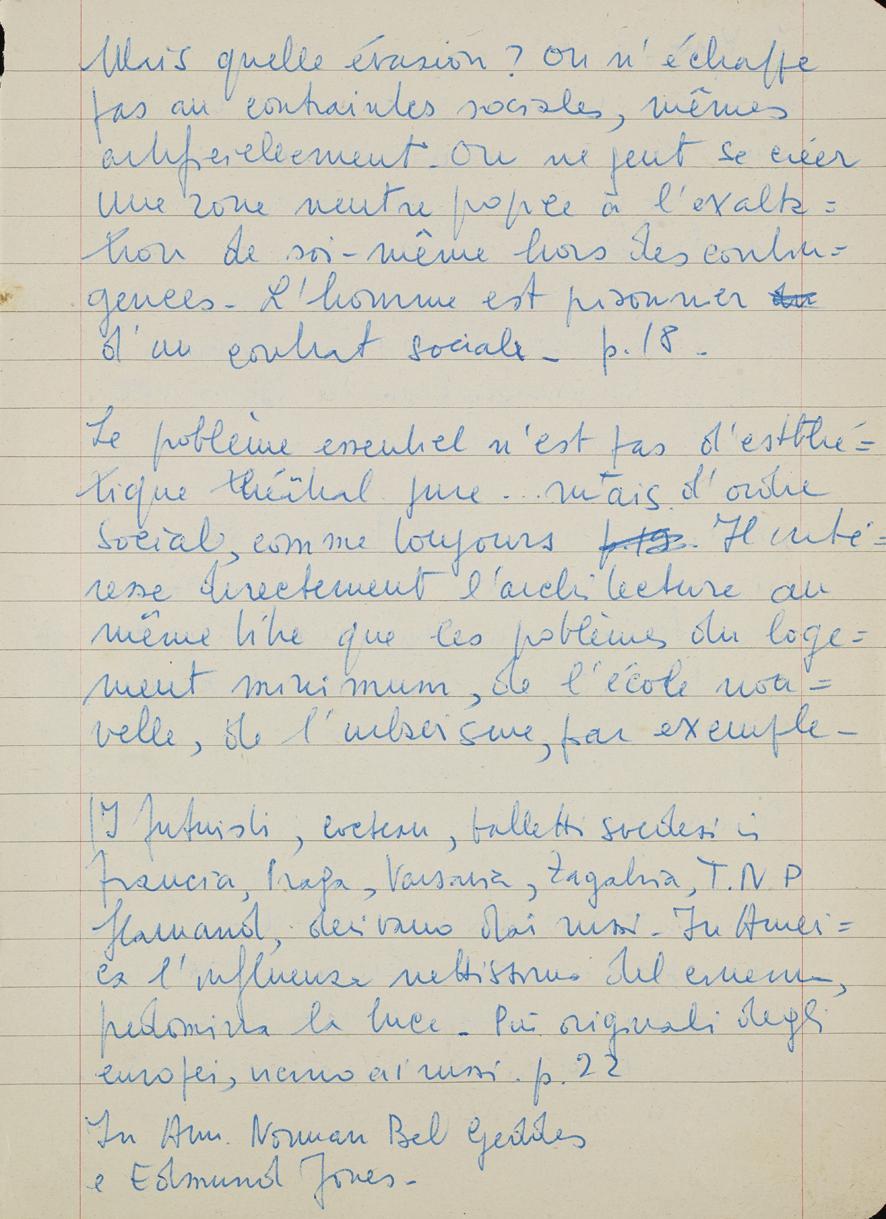 Mais quelle évasion? On n'échappe
pas au contraintes sociales, mêmes
artificiellement. On ne peut se créer
une zone neutre propre à l'exalta=
tion de soi-même hors des contin=
gences - L'homme est prisonnier
d'un contrat sociale - p. 18 -
Le problème essentiel n'est pas d'estthé=
tique théâtral pure ... mais d'ordre
social, comme toujours p. 19. Il inté=
resse directement l'architecture au
même titre que les problèmes du loge=
ment minimum, de l'école nou=
velle, de l'urbanisme, par exemple -
(I futuristi, cocteau, balletti svedesi in
Francia, Praga, Varsavia, Zagabria, T.N.P
flamand, derivano dai russi - In Ameri=
ca l'influenza nettissima del cinema,
predomina la luce - Più originali degli
europei, vicino ai russi. p. 22
In Am. Norman Bel Geddes
e Edmund Jones -